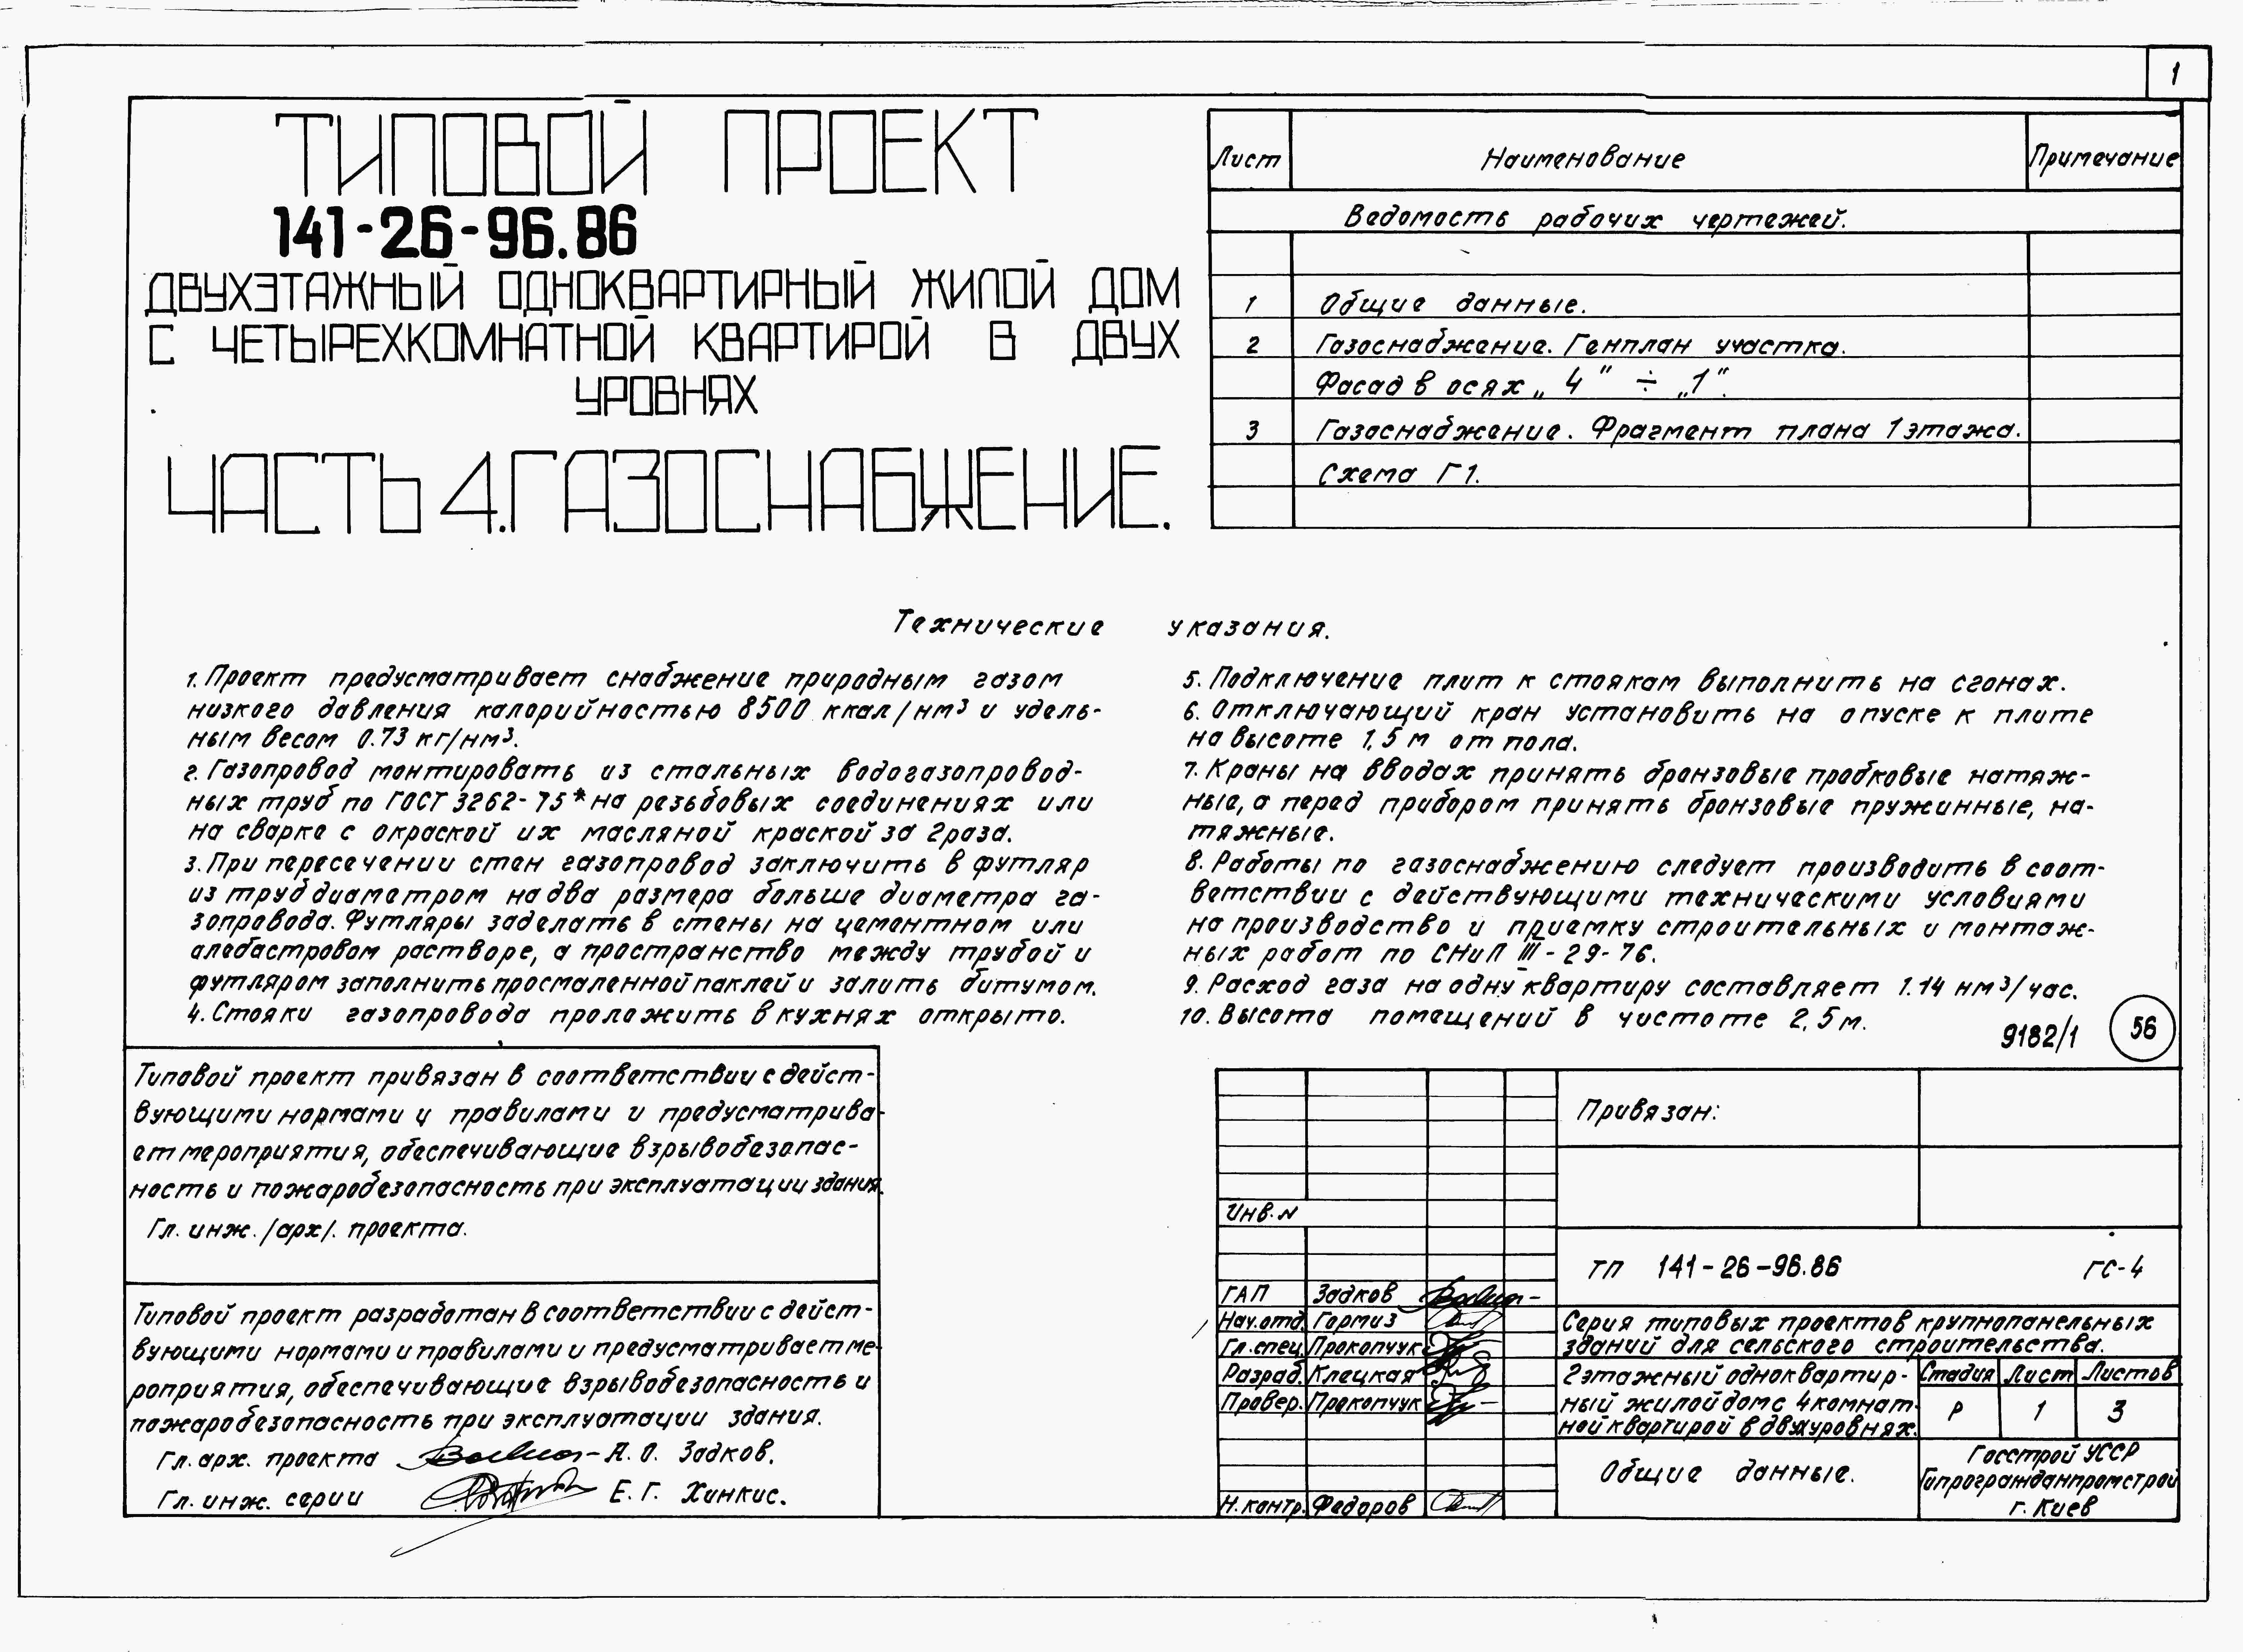 1
ТИПОВОЙ ПРОЕКТ
141-26-96.86
ДВУХЭТАЖНЫЙ ОДНОКВАРТИРНЫЙ ЖИЛОЙ ДОМ
С ЧЕТЫРЕХКОМНАТНОЙ КВАРТИРОЙ В ДВУХ
УРОВНЯХ
ЧАСТЬ 4. ГАЗОСНАБЖЕНИЕ.
Лист Наименование Примечание
Ведомость рабочих чертежей.
1 Общие данные.
2 Газоснабжение. Генплан участка.
Фасад в осях „4" ÷ „1".
3 Газоснабжение. Фрагмент плана 1 этажа.
Схема Г1.
Технические указания.
1. Проект предусматривает снабжение природным газом
низкого давления калорийностью 8500 ккал/нм³ и удель-
ным весом 0.73 кг/нм³.
2. Газопровод монтировать из стальных водогазопровод-
ных труб по ГОСТ 3262-75* на резьбовых соединениях или
на сварке с окраской их масляной краской за 2 раза.
3. При пересечении стен газопровод заключить в футляр
из труб диаметром на два размера больше диаметра га-
зопровода. Футляры заделать в стены на цементном или
алебастровом растворе, а пространство между трубой и
футляром заполнить просмаленной паклей и залить битумом.
4. Стояки газопровода проложить в кухнях открыто.
5. Подключение плит к стоякам выполнить на сгонах.
6. Отключающий кран установить на опуске к плите
на высоте 1,5 м от пола.
7. Краны на вводах принять бронзовые пробковые натяж-
ные, а перед прибором принять бронзовые пружинные, на-
тяжные.
8. Работы по газоснабжению следует производить в соот-
ветствии с действующими техническими условиями
на производство и приемку строительных и монтаж-
ных работ по СНиП III-29-76.
9. Расход газа на одну квартиру составляет 1.14 нм³/час.
10. Высота помещений в чистоте 2,5 м.
9182/1 56
Типовой проект привязан в соответствии с дейст-
вующими нормами и правилами и предусматрива-
ет мероприятия, обеспечивающие взрывобезопас-
ность и пожаробезопасность при эксплуатации здания.
Гл. инж. /арх/. проекта.
Типовой проект разработан в соответствии с дейст-
вующими нормами и правилами и предусматривает ме-
роприятия, обеспечивающие взрывобезопасность и
пожаробезопасность при эксплуатации здания.
Гл. арх. проекта А. О. Задков.
Гл. инж. серии Е. Г. Хинкис.
Привязан:
Инв. N
ТП 141-26-96.86 ГС-4
ГАП Задков
Нач. отд. Гормиз
Гл. спец. Прокопчук
Разраб. Клецкая
Провер. Прокопчук
Н. контр. Федоров
Серия типовых проектов крупнопанельных
зданий для сельского строительства.
2 этажный одноквартир-
ный жилой дом с 4 комнат-
ной квартирой в двух уровнях.
Стадия Лист Листов
Р 1 3
Общие данные.
Госстрой УССР
Гипрогражданпромстрой
г. Киев